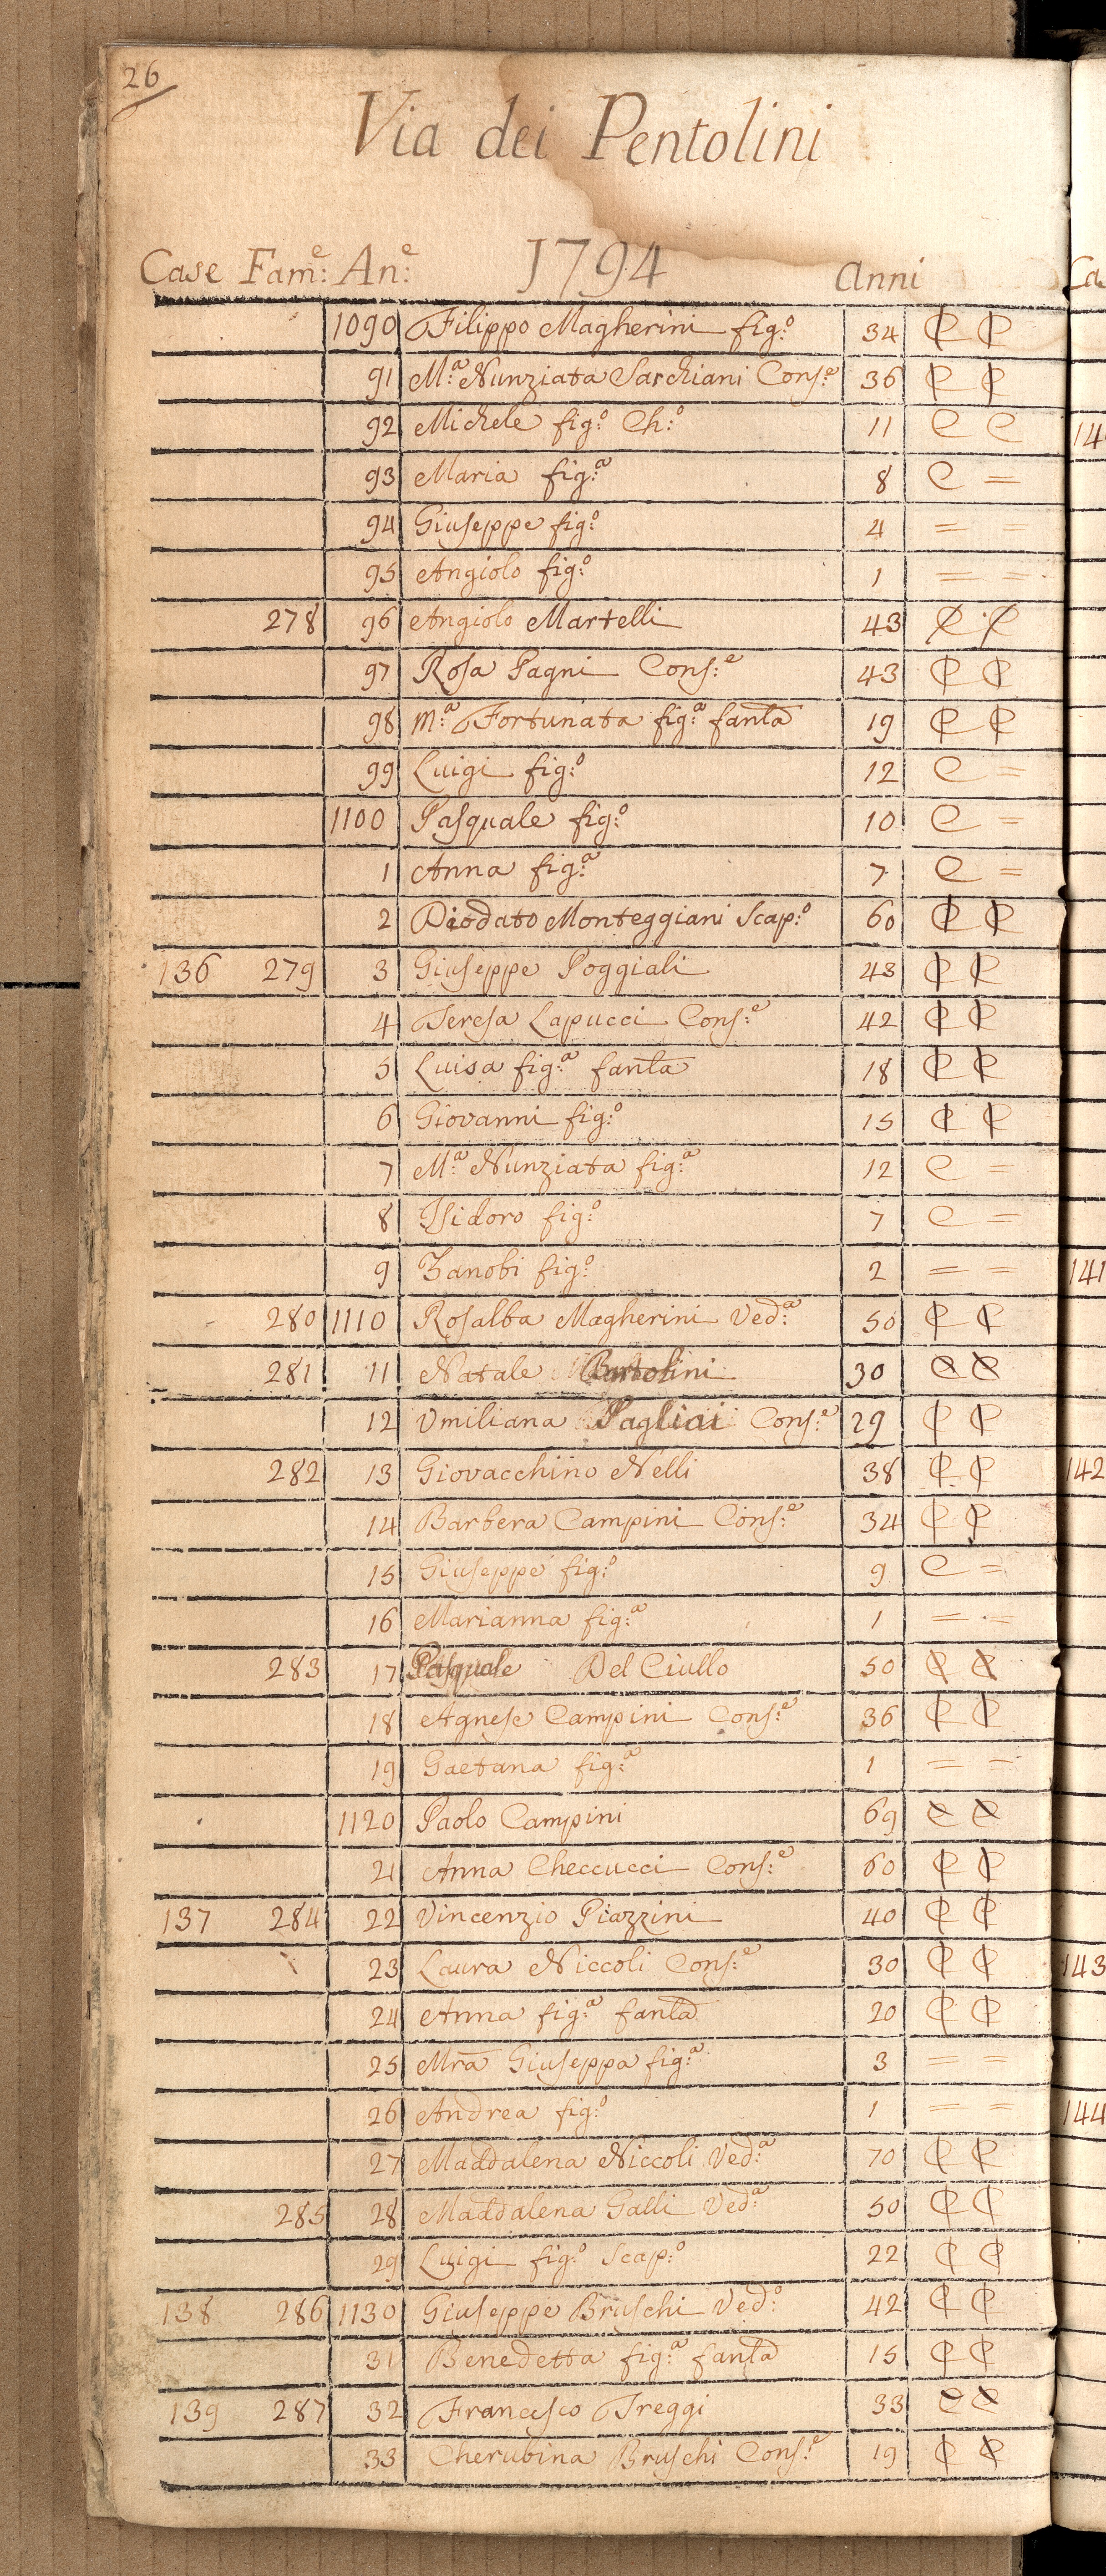 26
Via dei Pentolini
Case Fam:e An:e 1794 Anni
1090 Filippo Magherini fig:o 34 C C
91 M:a Nunziata Sarchiani Cons:e 36 C C
92 Michele fig:o Ch:o 11 C C
93 Maria fig:a 8 C =
94 Giuseppe fig:o 4 =
95 Angiolo fig:o 1 = =
278 96 Angiolo Martelli 43 C C
97 Rosa Pagni Cons:e 43 C C
98 M:a Fortunata fig:a fanla 19 C C
99 Luigi fig:o 12 C =
1100 Pasquale fig:o 10 C =
1 Anna fig:a 7 C =
2 Diodato Monteggiani Scap:o 60 C C
136 279 3 Giuseppe Poggiali 43 C C
4 Teresa Lapucci Cons:e 42 C C
5 Luisa fig:a fanla 18 C C
6 Giovanni fig:o 15 C C
7 M:a Nunziata fig:a 12 C =
8 Isidoro fig:o 7 C =
9 Zanobi fig:o 2 = =
280 1110 Rosalba Magherini Ved:a 50 C C
281 11 Natale Bartolini 30 C C
12 Umiliana Pagliai Cons:e 29 C C
282 13 Giovacchino Nelli 38 C C
14 Barbera Campini Cons:e 34 C C
15 Giuseppe fig:o 9 C =
16 Marianna fig:a 1 = =
283 17 Pasquale Del Ciullo 50 C C
18 Agnese Campini Cons:e 36 C C
19 Gaetana fig:a 1 = =
1120 Paolo Campini 69 C C
21 Anna Checcucci Cons:e 60 C C
137 284 22 Vincenzio Piazzini 40 C C
23 Laura Niccoli Cons:e 30 C C
24 Anna fig:a fanla 20 C C
25 Mra Giuseppa fig:a 3 = =
26 Andrea fig:o 1 = =
27 Maddalena Niccoli Ved:a 70 C C
285 28 Maddalena Galli Ved:a 50 C C
29 Luigi fig:o Scap:o 22 C C
138 286 1130 Giuseppe Bruschi Ved:o 42 C C
31 Benedetta fig:a fanla 15 C C
139 287 32 Francesco Treggi 33 C C
33 Cherubina Bruschi Cons:e 19 C C
Ca
14
141
142
143
144